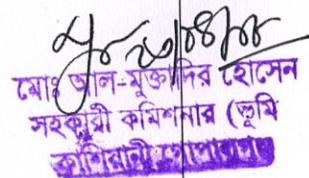 মোঃ আল-মুক্তাদির হোসেন
সহকারী কমিশনার (ভূমি
কাশিয়ানী গোপালগঞ্জ